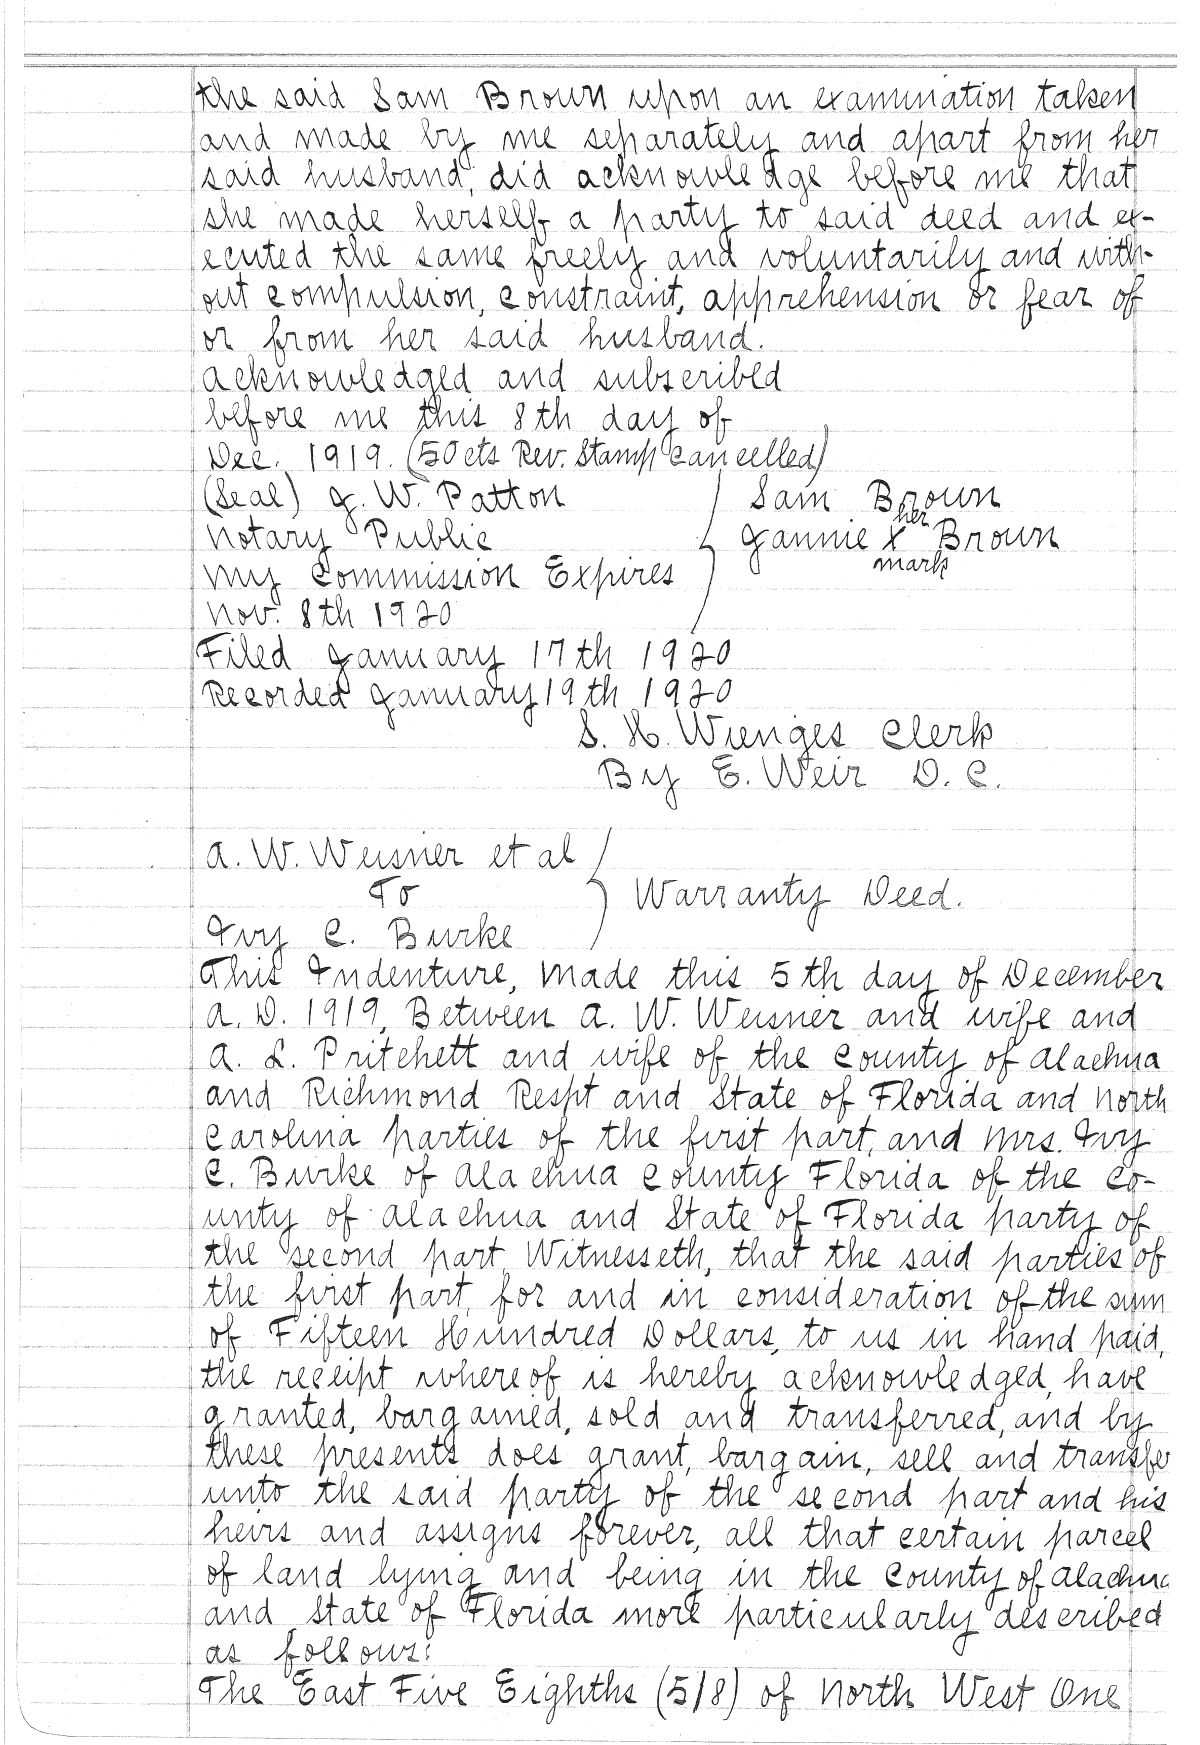 the said Sam Brown upon an examination taken
and made by me separately and apart from her
said husband, did acknowledge before me that
she made herself a party to said deed and ex-
ecuted the same freely and voluntarily and with-
out compulsion, constraint, apprehension or fear of
or from her said husband.
Acknowledged and subscribed
before me this 8th day of
Dec. 1919. (50cts Rev. Stamp cancelled)
(Seal) J. W. Patton
Notary Public
My Commission Expires
Nov. 8th 1920
Sam Brown
her
Jannie X Brown
mark
Filed January 17th 1920
Recorded January 19th 1920
S. H. Wienges Clerk
By E. Weir D. C.
A. W. Weisner et al
To
Ivy C. Burke
Warranty Deed.
This Indenture, Made this 5th day of December
A. D. 1919, Between A. W. Weisner and wife and
A. L. Pritchett and wife of the County of Alachua
and Richmond Respt and State of Florida and North
Carolina parties of the first part, and Mrs. Ivy
C. Burke of Alachua County Florida of the Co-
unty of Alachua and State of Florida party of
the second part, Witnesseth, that the said parties of
the first part, for and in consideration of the sum
of Fifteen Hundred Dollars, to us in hand paid,
the receipt whereof is hereby acknowledged, have
granted, bargained, sold and transferred, and by
these presents does grant, bargain, sell and transfe
unto the said party of the second part and his
heirs and assigns forever, all that certain parcel
of land lying and being in the County of Alachua
and State of Florida more particularly described
as follows:
The East Five Eighths (5/8) of North West One